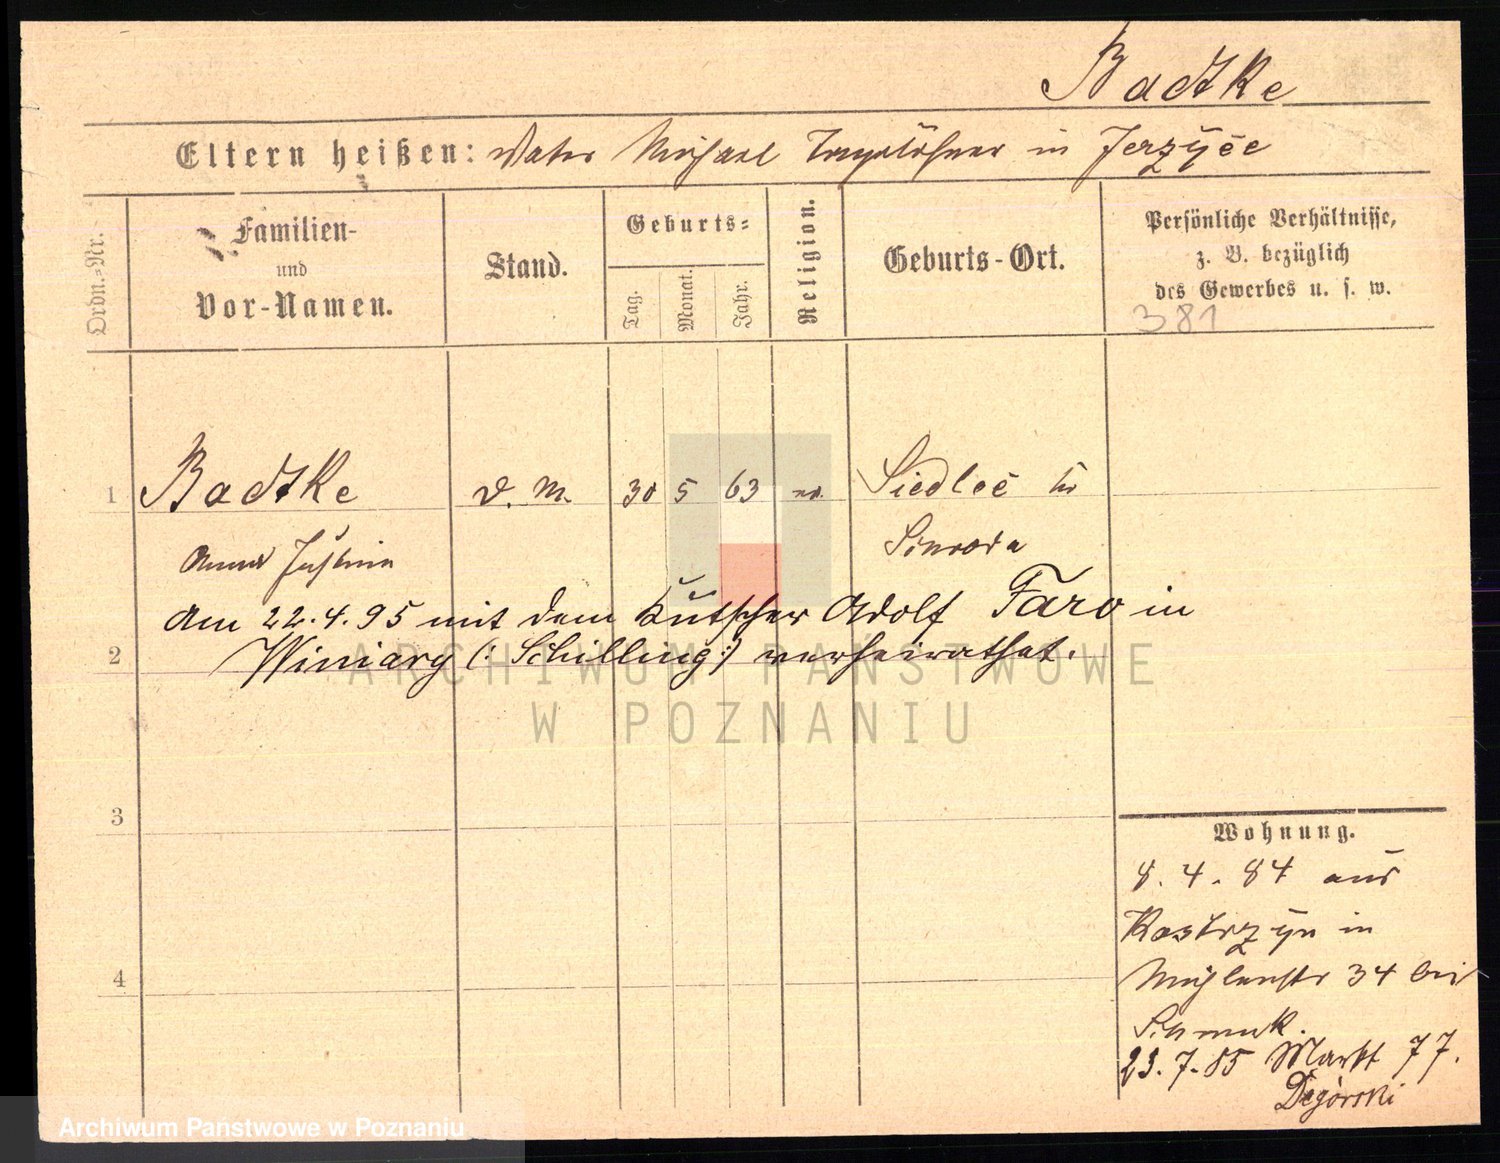 Badtke
Eltern heißen: Vater Michael Tagelöhner in Jerzyce
Ordn.-Nr.
Familien-
und
Vor-Namen.
Stand.
Geburts-
Tag.
Monat.
Jahr.
Religion.
Geburts-Ort.
Persönliche Verhältnisse,
z. B. bezüglich
des Gewerbes u. s. w.
381
1 Badtke D. M. 30 5 63 ev. Siedlec Kr
Anna Justina Schroda
Am 22.4.95 mit dem Kutscher Adolf Faro in
2 Winiary (: Schilling :) verheirathet.
ARCHIWUM PAŃSTWOWE
W POZNANIU
3
Wohnung.
8.4.84 aus
Kostrzyn in
4 Mühlenstr 34 bei
23.7.85 Markt 77.
Degórski
Archiwum Państwowe w Poznaniu